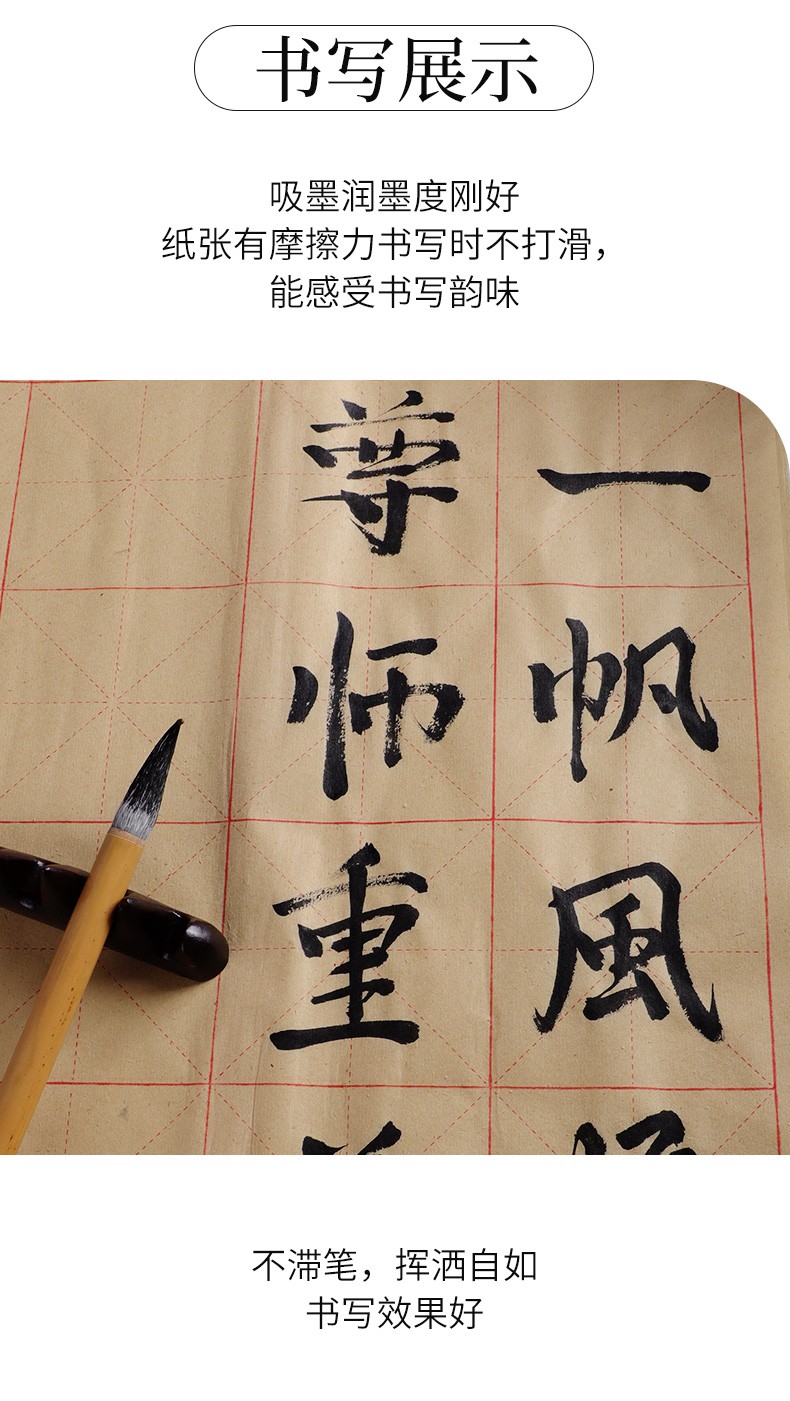 书写展示
吸墨润墨度刚好
纸张有摩擦力书写时不打滑，
能感受书写韵味
一帆風
尊师重
不滞笔，挥洒自如
书写效果好